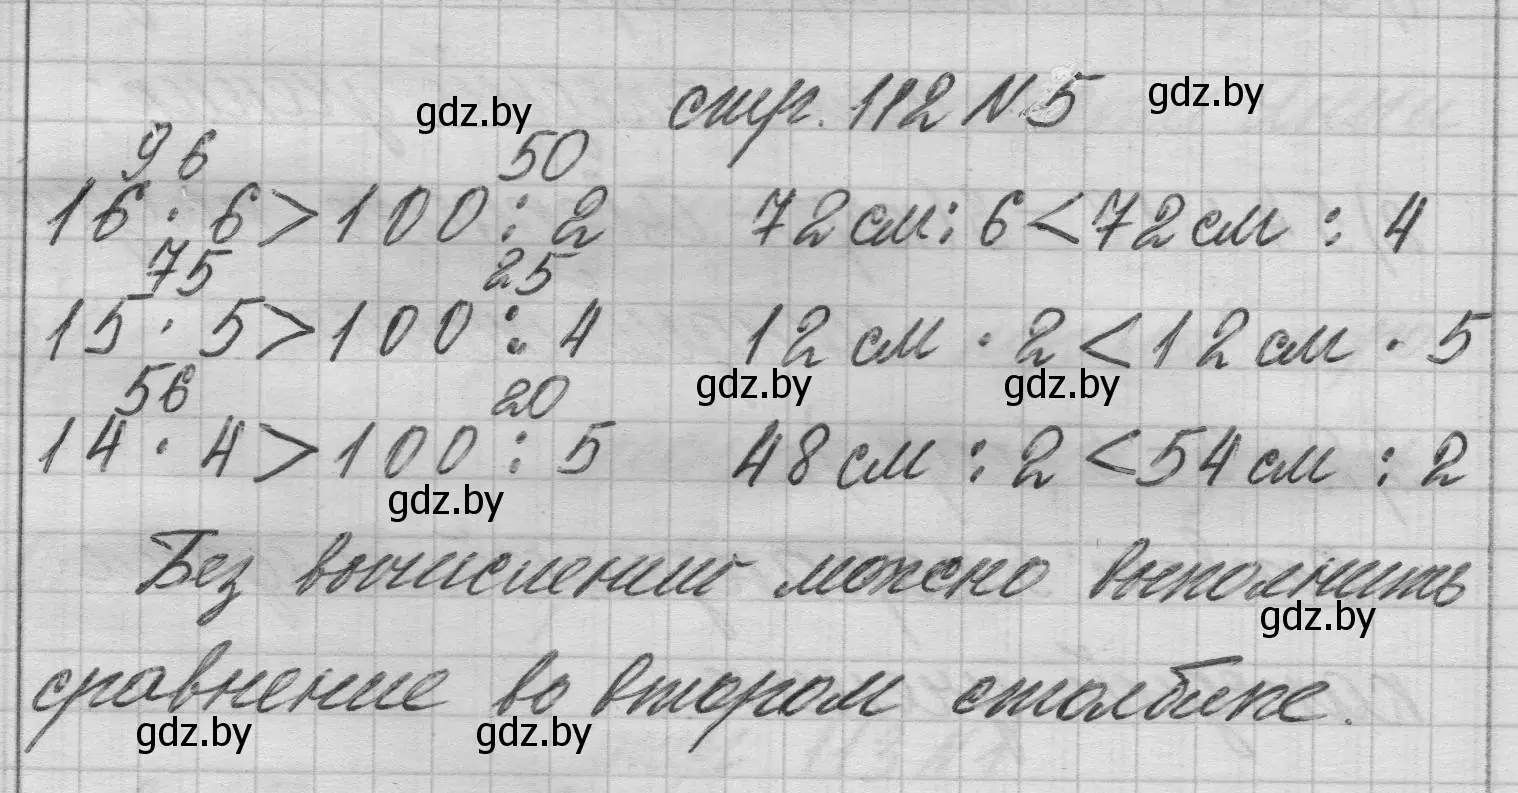 стр. 112 N 5
gdz.by gdz.by
96 50
16 · 6 > 100 : 2 72 см : 6 < 72 см : 4
75 25
15 · 5 > 100 : 4 12 см · 2 < 12 см · 5
gdz.by gdz.by
56 20
14 · 4 > 100 : 5 48 см : 2 < 54 см : 2
gdz.by
Без вычислений можно выполнить
gdz.by
сравнение во втором столбике.
gdz.by gdz.by